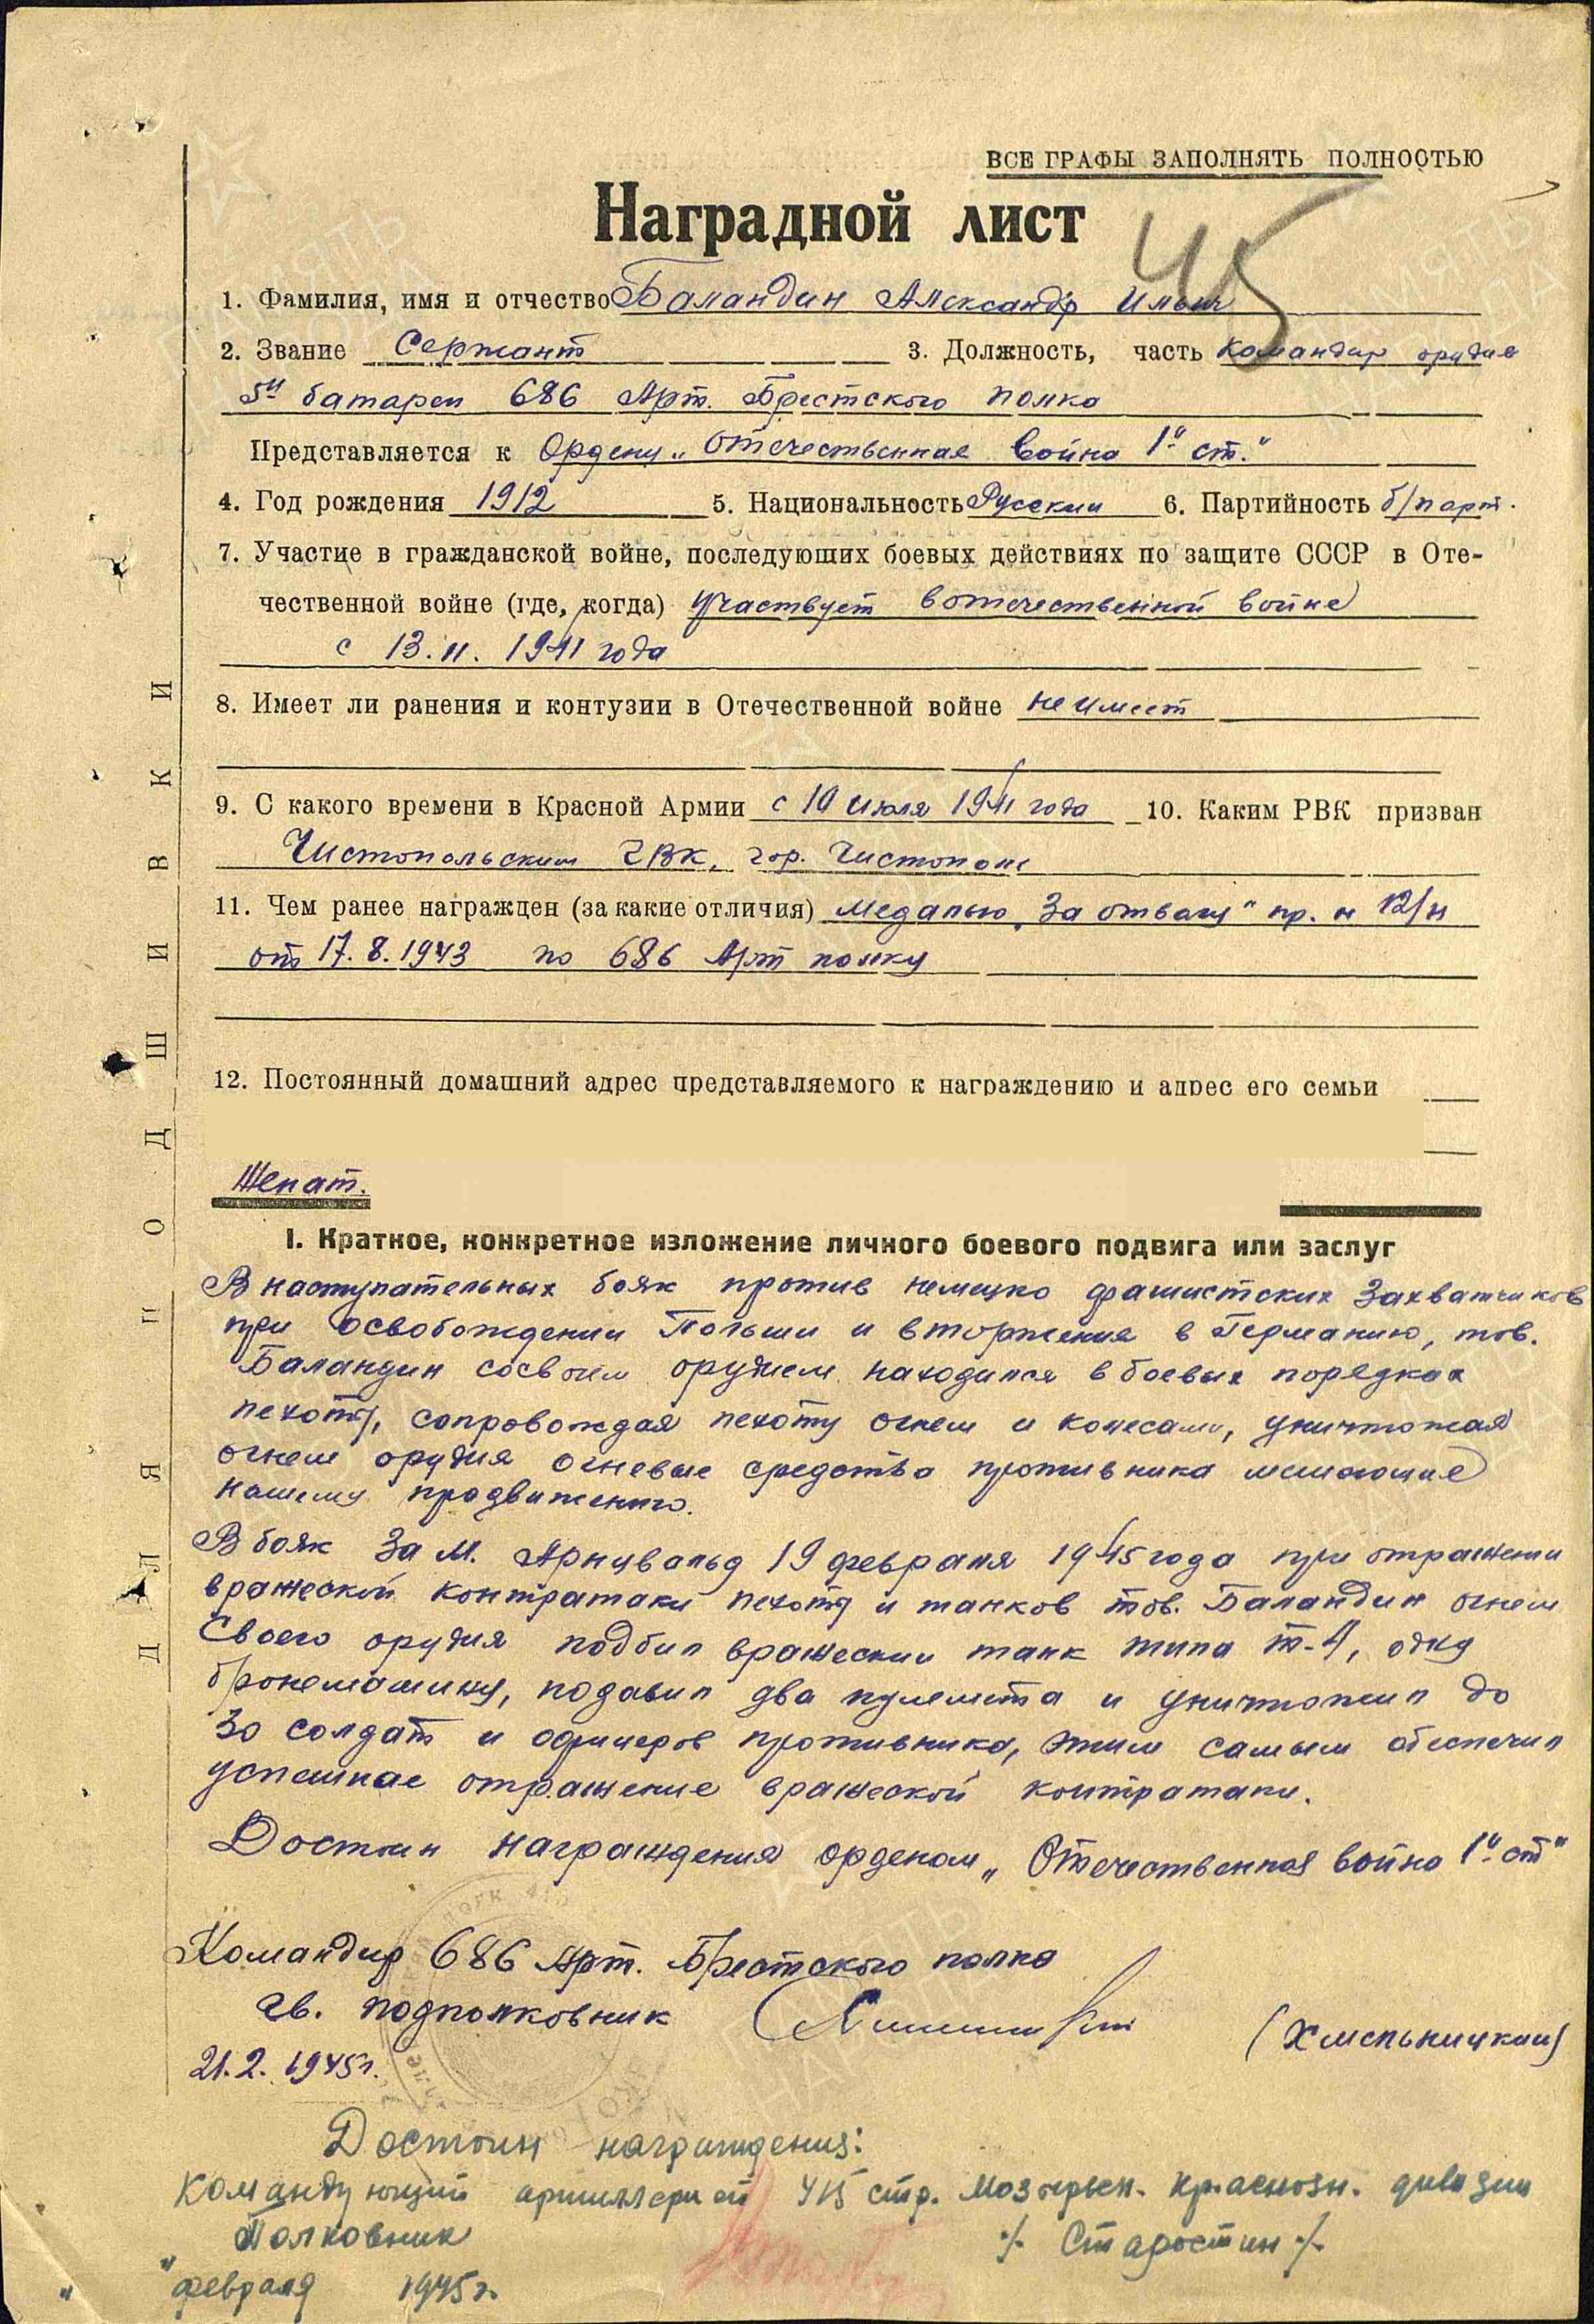 ВСЕ ГРАФЫ ЗАПОЛНЯТЬ ПОЛНОСТЬЮ
45
Наградной лист
1. Фамилия, имя и отчество Баландин Александр Ильич
2. Звание Сержант 3. Должность, часть командир орудия
5й батареи 686 Арт. Брестского полка
Представляется к Ордену „Отечественная война 1й ст."
4. Год рождения 1912 5. Национальность Русский 6. Партийность б/парт.
7. Участие в гражданской войне, последующих боевых действиях по защите СССР в Оте-
чественной войне (где, когда) участвует в отечественной войне
с 13.11.1941 года
8. Имеет ли ранения и контузии в Отечественной войне не имеет
9. С какого времени в Красной Армии с 10 июля 1941 года 10. Каким РВК призван
Чистопольским ГВК, гор. Чистополь
11. Чем ранее награжден (за какие отличия) медалью „За отвагу" пр. н 12/н
от 17.8.1943 по 686 Арт полку
12. Постоянный домашний адрес представляемого к награждению и адрес его семьи
Женат.
I. Краткое, конкретное изложение личного боевого подвига или заслуг
В наступательных боях против немецко фашистских захватчиков
при освобождении Польши и вторжения в Германию, тов.
Баландин со своем орудием находился в боевых порядках
пехоты, сопровождая пехоту огнем и колесами, уничтожая
огнем орудия огневые средства противника мешающие
нашему продвижению.
В боях за м. Арнцвальд 19 февраля 1945 года при отражении
вражеской контратаки пехоты и танков тов. Баландин огнем
своего орудия подбил вражеский танк типа Т-4, одну
бронемашину, подавил два пулемета и уничтожил до
30 солдат и офицеров противника, этим самым обеспечил
успешное отражение вражеской контратаки.
Достоин награждения орденом „Отечественная война 1й ст"
Командир 686 Арт. Брестского полка
гв. подполковник (Хмельницкий)
21.2.1945г.
Достоин награждения:
Командующий артиллерией 415 стр. Мозырьск. Краснозн. дивизии
Полковник /Старостин/
" " февраля 1945г.
ДЛЯ ПОДШИВКИ
ПАМЯТЬ НАРОДА